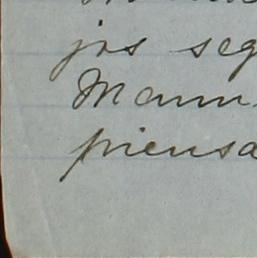 jos seg
Mann
piensa